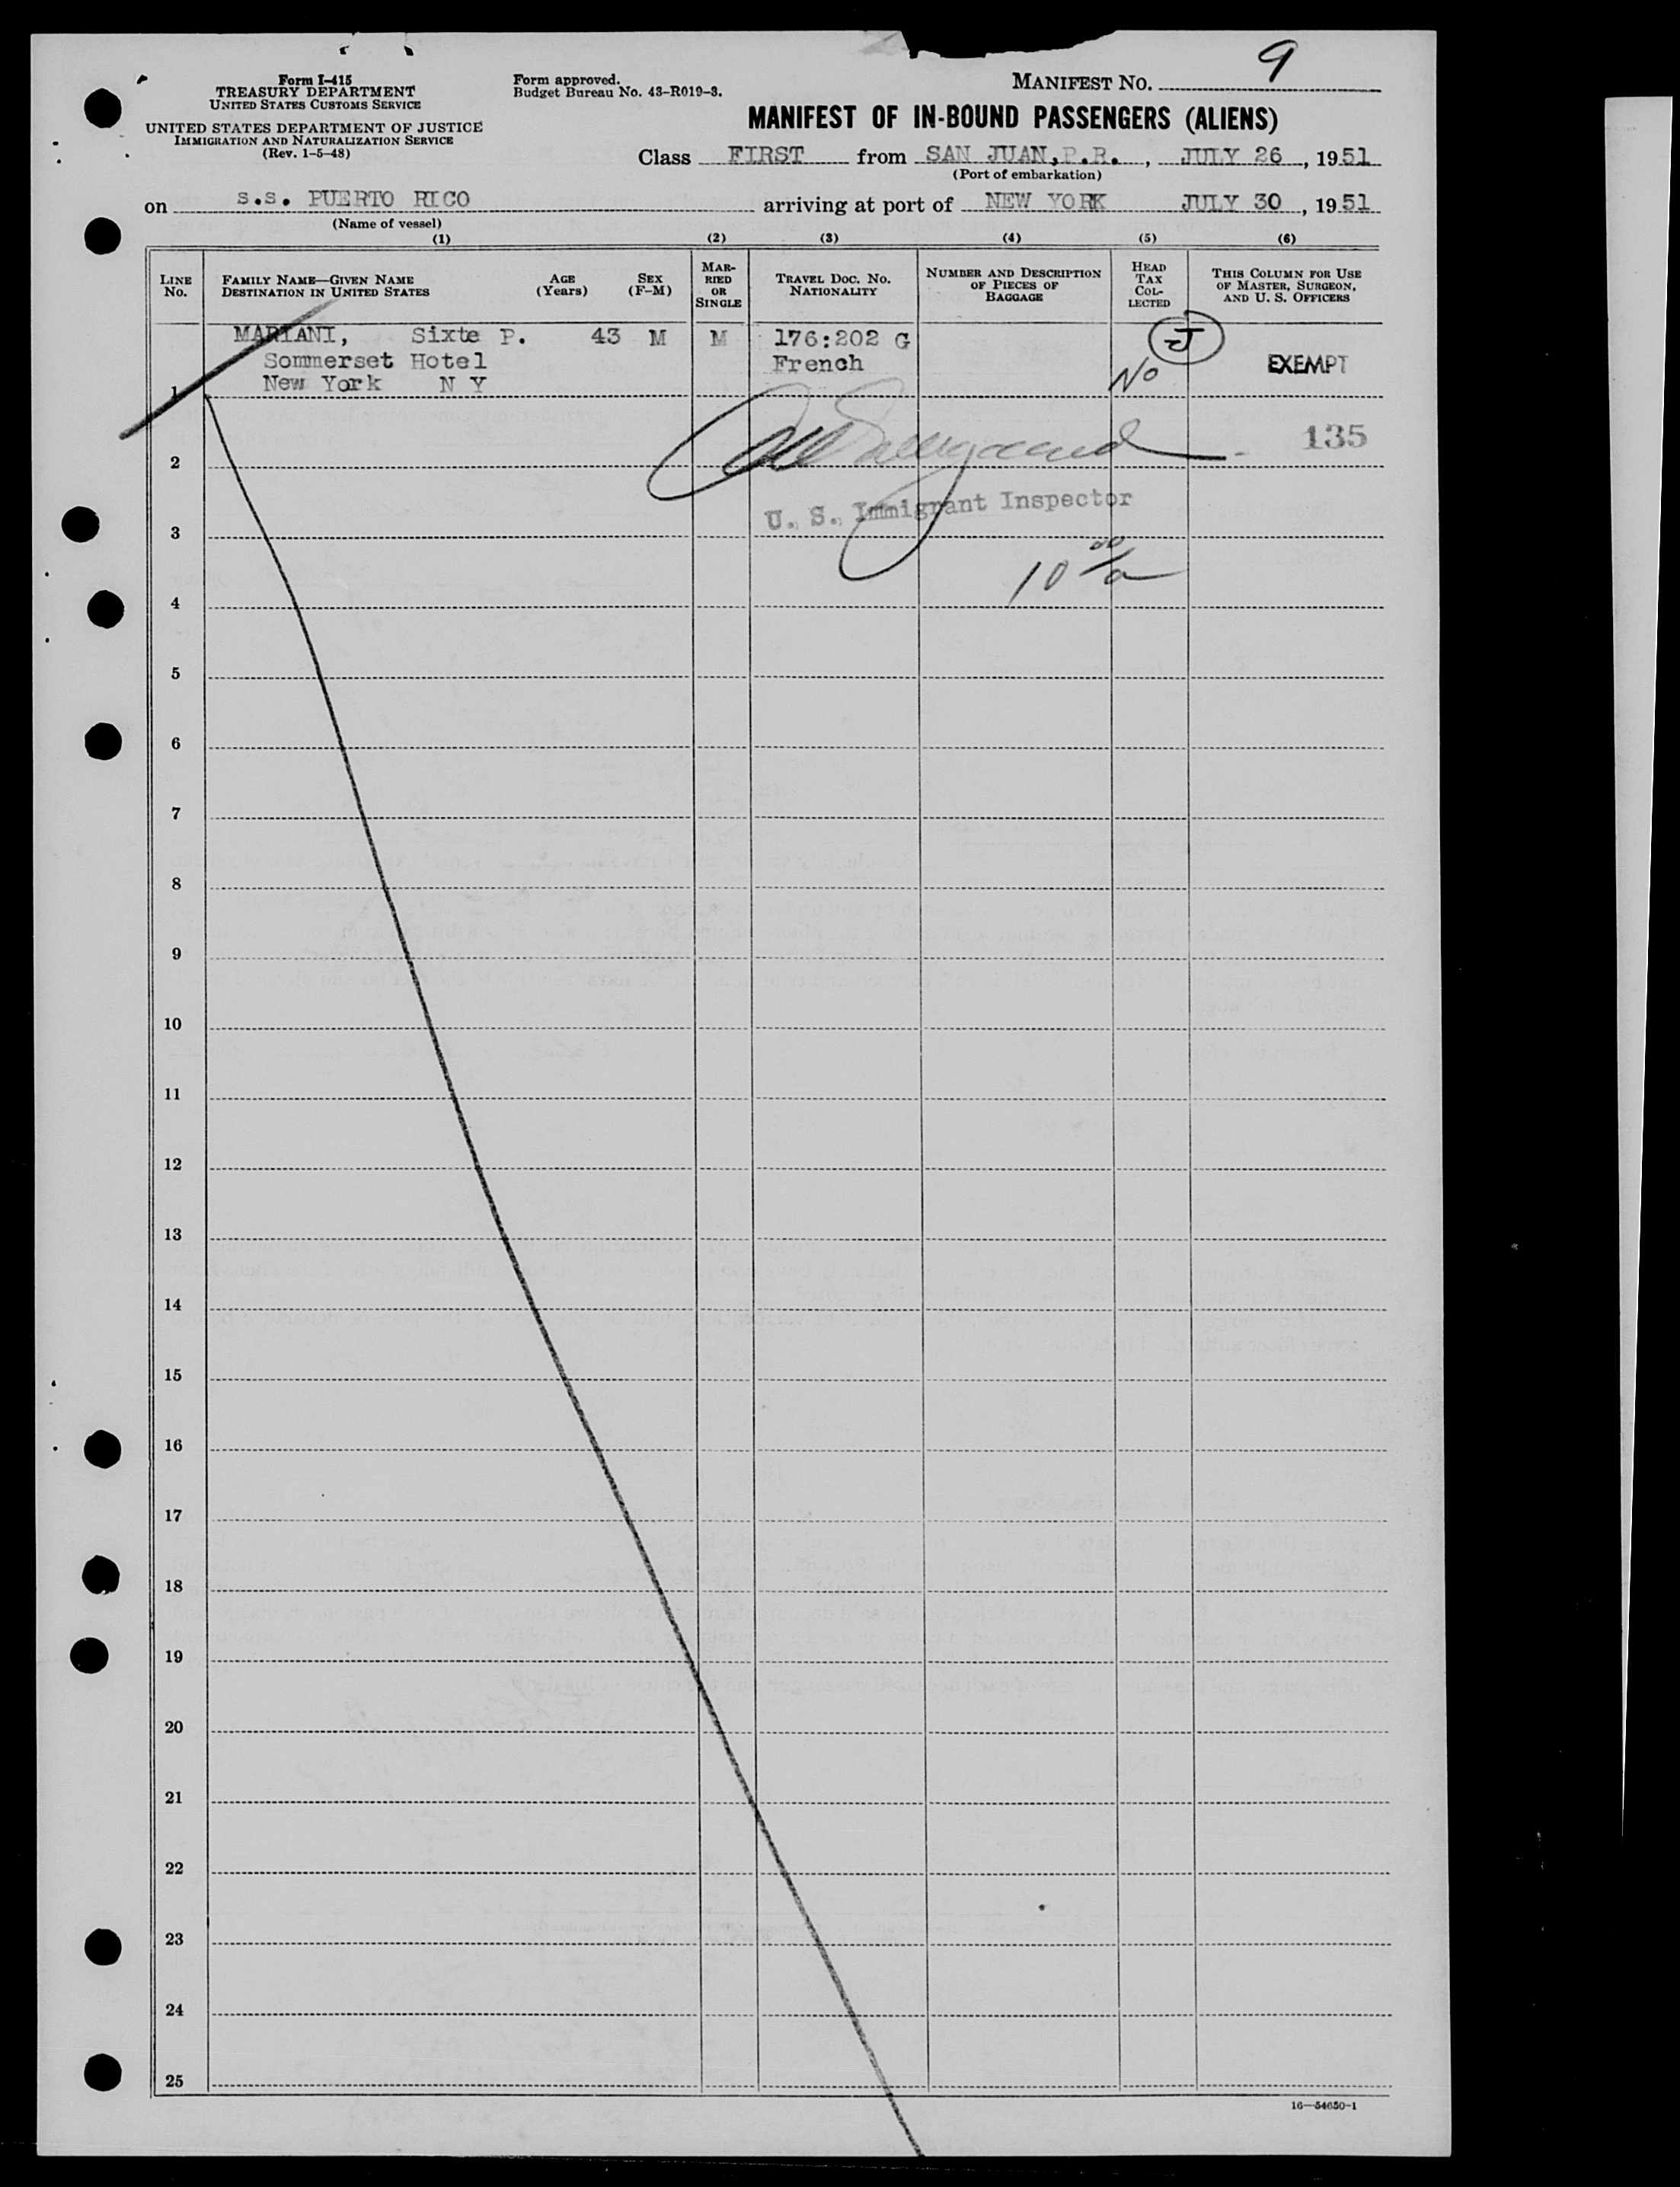 Form I-415
TREASURY DEPARTMENT
UNITED STATES CUSTOMS SERVICE
UNITED STATES DEPARTMENT OF JUSTICE
IMMIGRATION AND NATURALIZATION SERVICE
(Rev. 1-5-48)
Form approved.
Budget Bureau No. 43-R019-3.
MANIFEST NO. 9
MANIFEST OF IN-BOUND PASSENGERS (ALIENS)
Class FIRST from SAN JUAN, P.R., JULY 26, 1951
(Port of embarkation)
on S.S. PUERTO RICO arriving at port of NEW YORK JULY 30, 1951
(Name of vessel)
(1) (2) (3) (4) (5) (6)
LINE No.
FAMILY NAME—GIVEN NAME
DESTINATION IN UNITED STATES
AGE (Years)
SEX (F-M)
MARRIED OR SINGLE
TRAVEL DOC. NO. NATIONALITY
NUMBER AND DESCRIPTION OF PIECES OF BAGGAGE
HEAD TAX COLLECTED
THIS COLUMN FOR USE OF MASTER, SURGEON, AND U. S. OFFICERS
MARIANI, Sixte P. 43 M M 176:202 G J
Sommerset Hotel French EXEMPT
1 New York N Y No
2 135
U. S. Immigrant Inspector
3
10 00/a
4
5
6
7
8
9
10
11
12
13
14
15
16
17
18
19
20
21
22
23
24
25
16—54650-1